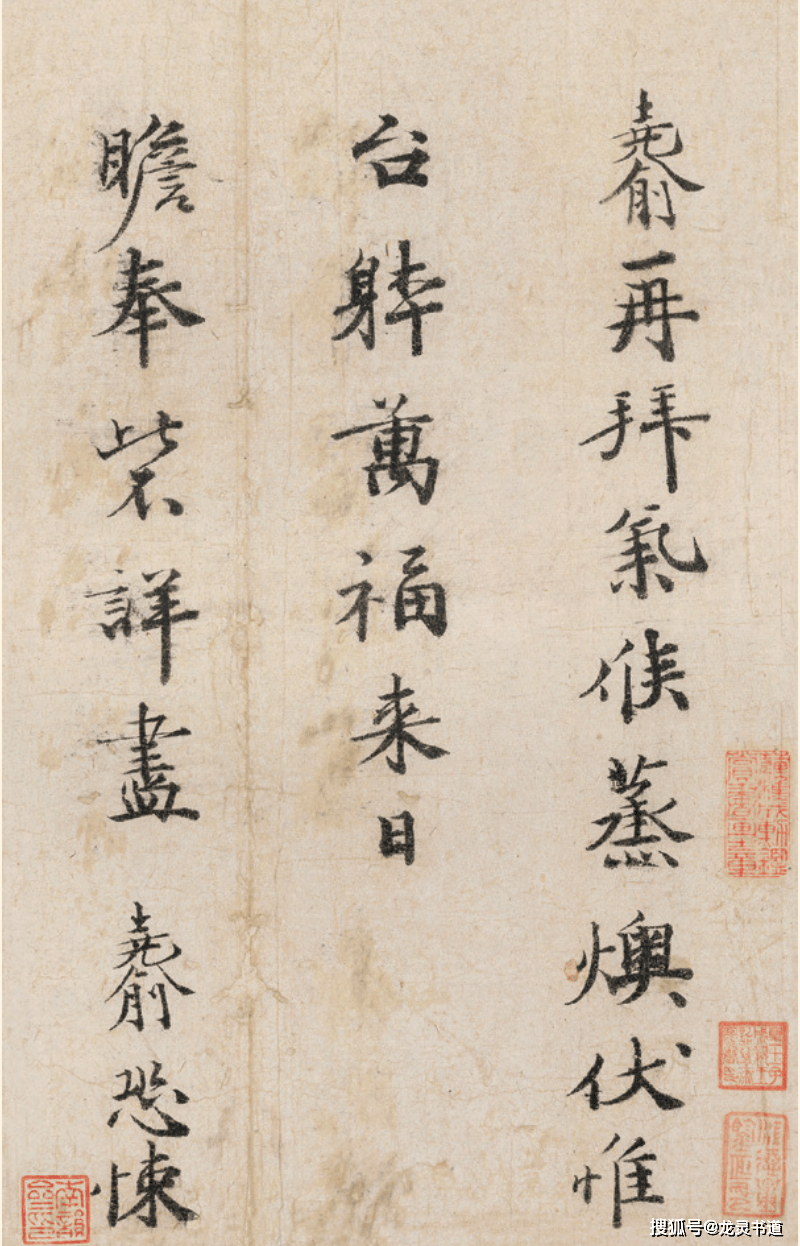 堯俞再拜氣候蒸燠伏惟
台躰萬福来日
瞻奉此不詳盡 堯俞恐悚
搜狐号@龙灵书道